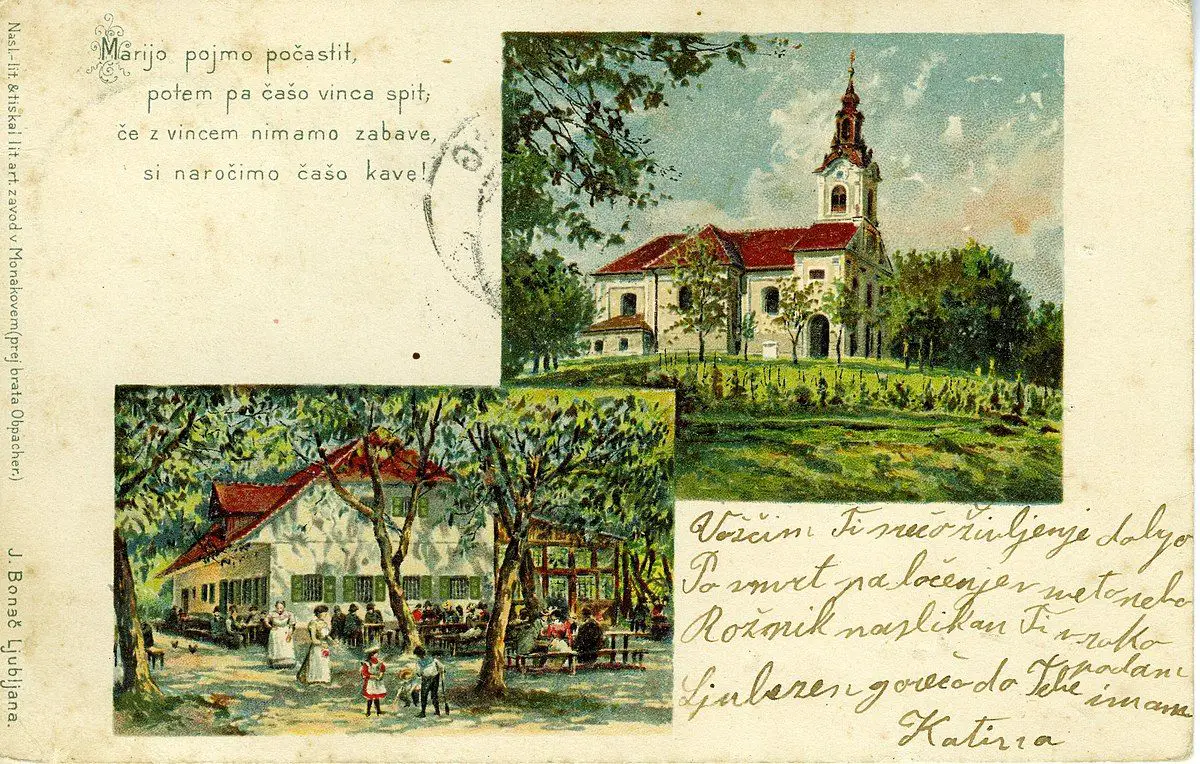 Marijo pojmo počastit,
potem pa čašo vinca spit;
če z vincem nimamo zabave,
si naročimo čašo kave!
Nasl.-lit & tiskal lit. art. zavod v Monakovem (prej brata Obpacher.)
J. Bonač Ljubljana.
Voščim Ti srečo življenje dolgo
Po smrt pa ločenje v neto nebo
Rožnik naslikan Ti v roko
podam
Ljubezen gorečo do Tebe imam
Katina